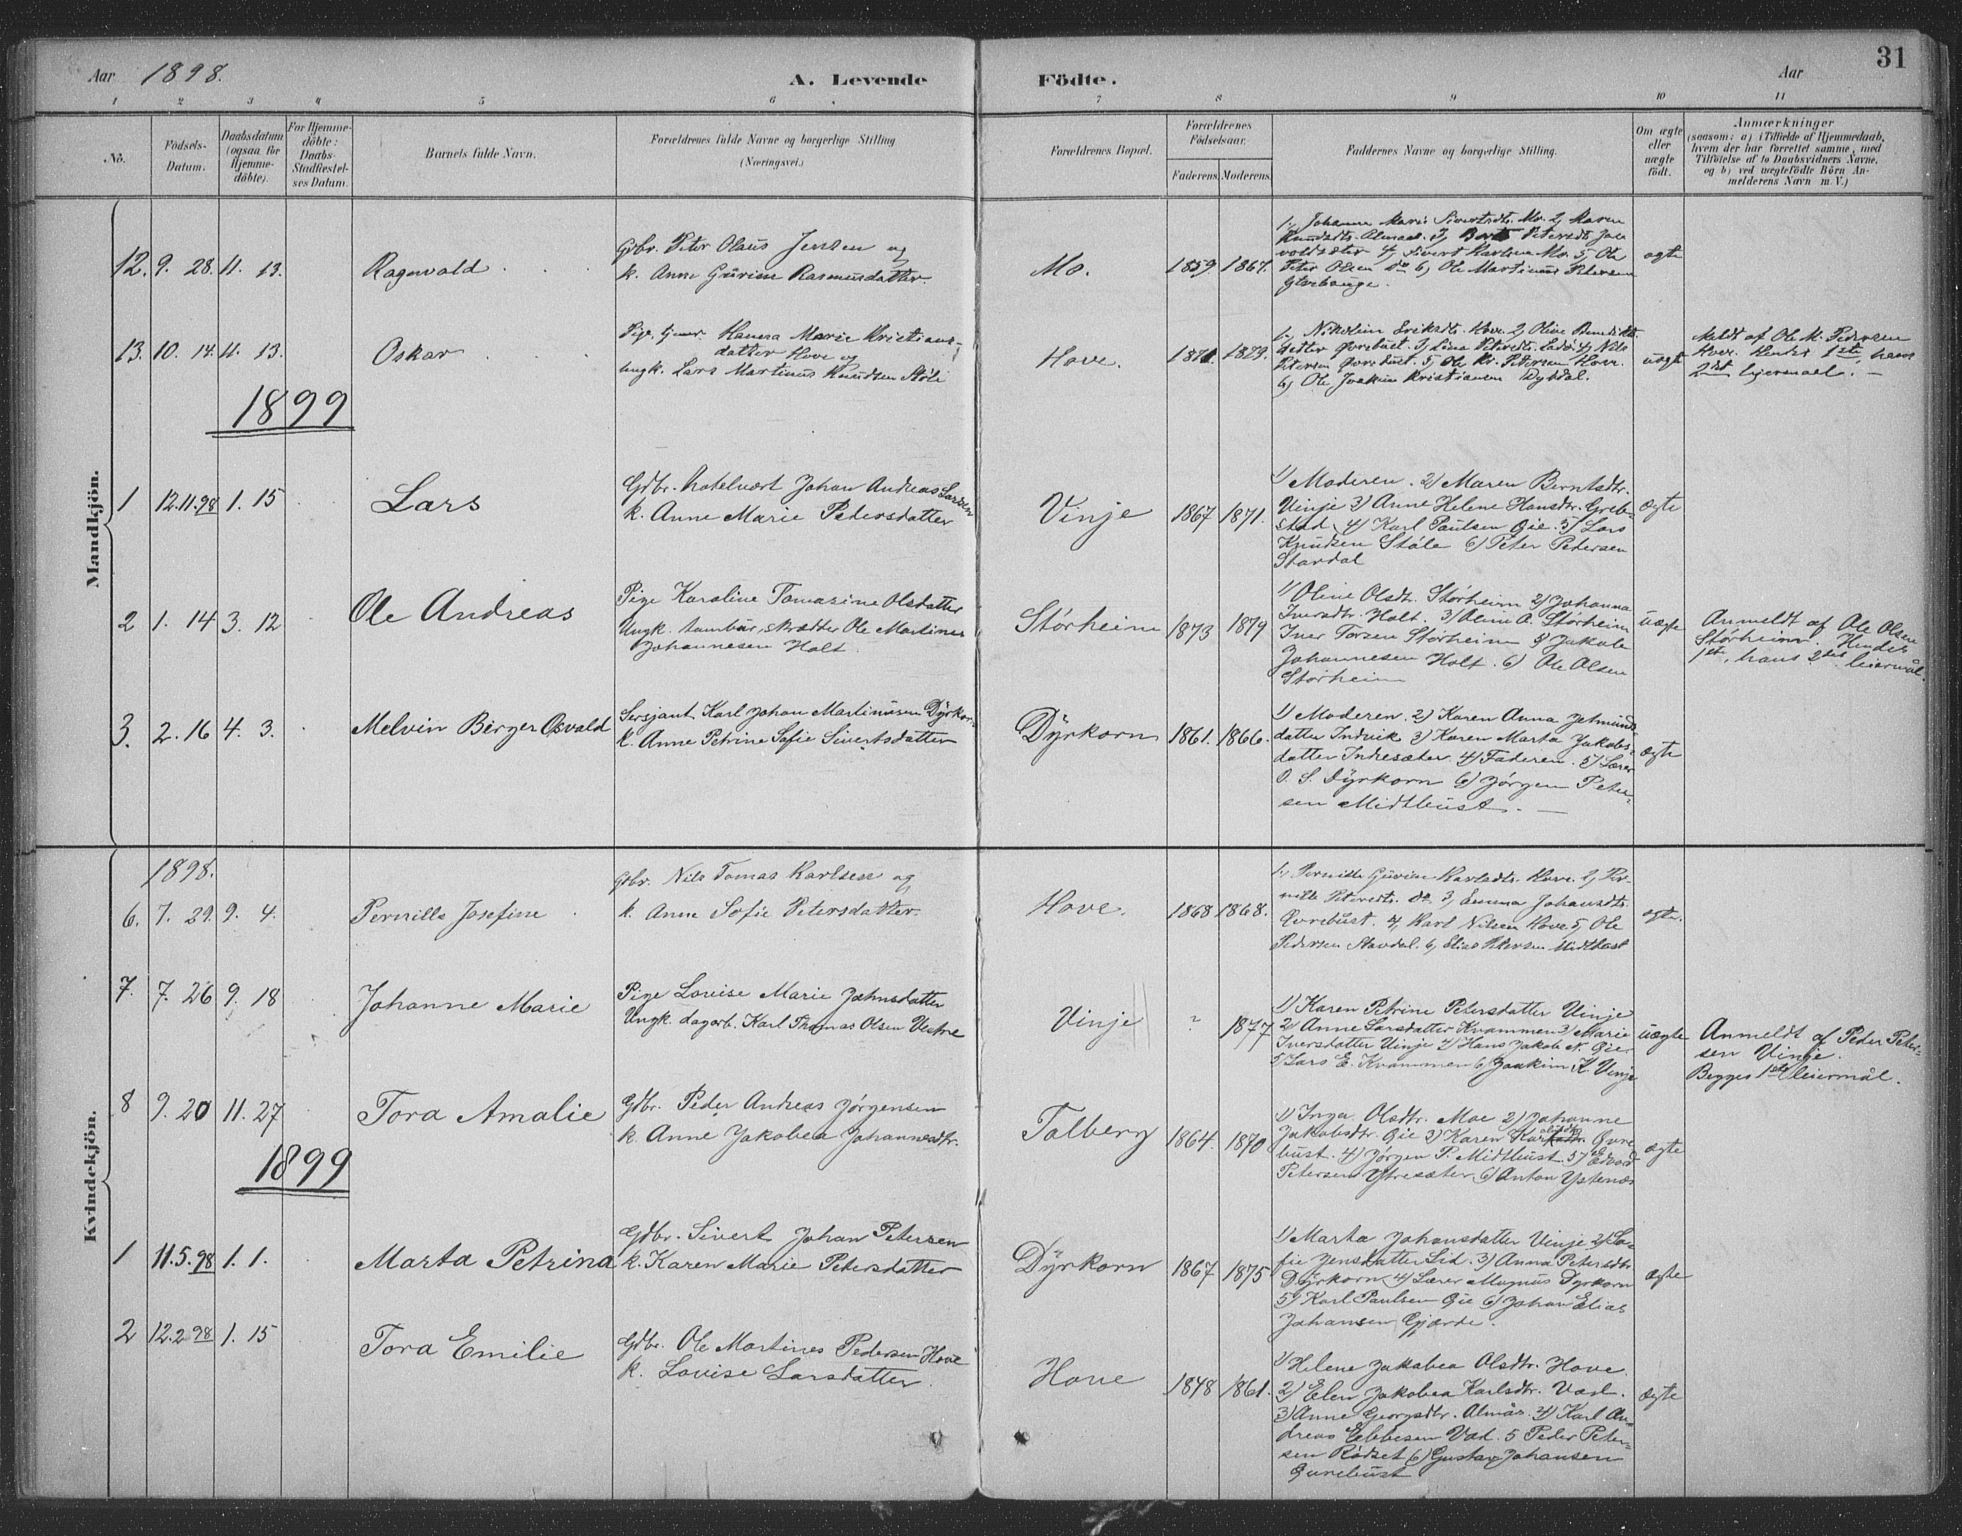 Aar 1898.
A. Levende Födte.
Aar
31
1 2 3 4 5 6 7 8 9 10 11
No.
Födsels-Datum.
Daabsdatum (ogsaa for Hjemme-döbte).
For Hjemme-döbte: Daabs-Stadfæstelses Datum.
Barnets fulde Navn.
Forældrenes fulde Navne og borgerlige Stilling (Næringsvei.)
Forældrenes Bopæl.
Forældrenes Födselsaar.
Faderens. Moderens.
Faddernes Navne og borgerlige Stilling.
Om ægte eller uægte födt.
Anmærkninger
(saasom: a) i Tilfælde af Hjemmedaab, hvem der har forrettet samme, med Tilföielse af to Daabsvidners Navne, og b) ved uægtefödte Börn Anmelderens Navn m. V.)
Mandkjön.
12. 9. 28. 11. 13. Ragnvald
Gdbr. Peter Olaus Jensen og
k. Anne Gurine Rasmusdatter.
Mo. 1859 1867.
1, Johanne Marie Sivertsdt. Mo. 2, Karen
Knudsdt. 3, Berte Petersdt.
4, Sivert Karlsen Mo. 5, Ole
Peter Olsen do 6, Ole Martinus Petersen
ægte
13. 10. 14. 11. 13. Oskar
Pige Hanna Marie Kristians-
datter Hove og
Ungk. Lars Martinus Knudsen Støle
Hove. 1871. 1873.
1, Nikoline Eriksdt. Hove. 2, Oline Benedikts-
datter Qvrebust. 3, Line Petersdt. 4, Nils
Petersen Qvrebust. 5, Ole Kr. Petersen Hove.
6, Ole Joakim Kristiansen Dybdal.
uægte
Meldt af Ole M. Pedersen
Hove. Hendes 1ste, hans
2det leiermaal. —
1899
1 12.11.98 1. 15 Lars
Gdbr. hotelvært Johan Andreas Larsen
k. Anne Marie Petersdatter
Vinje 1867 1871.
1) Moderen. 2) Maren Berntsdtr.
Vinje 3) Anne Helene Hansdtr. Greb-
stad 4) Karl Paulsen Gie. 5) Lars
Knudsen Støle 6) Peter Pedersen
Stavdal
ægte
2 1. 14 3. 12 Ole Andreas
Pige Karoline Tomasine Olsdatter
Ungk. tambur, skrædder Ole Martinus
Johannesen Holt.
Størheim 1873 1879
1) Oline Olsdt. Størheim 2) Johanna
Iversdtr. Holt. 3) Oline A. Størheim
Iver Torsen Størheim 5) Jakob
Johannesen Holt. 6) Ole Olsen
Størheim
uægte
Anmeldt af Ole Olsen
Størheim. Hendes
1st, hans 2det leiermål.
3. 2. 16 4. 3. Melvin Birger Osvald
Sersjant Karl Johan Martinusen Dyrkorn
k. Anne Petrine Sofie Sivertsdatter
Dyrkorn 1861. 1866.
1) Moderen. 2) Karen Anna Jetmunds-
datter Indvik 3) Karen Marta Jakobs-
datter Indresæter. 4) Faderen. 5) Lærer
O. S. Dyrkorn 6) Jørgen Peter-
sen Midthust. —
ægte
Kvindekjön.
1898.
6. 7. 29. 9. 4. Pernille Josefine
Gdbr. Nils Tomas Karlsen og
k. Anne Sofie Petersdatter.
Hove. 1868 1868.
1, Pernille Gurine Karlsdt. Hove. 2, Per-
nille Petersdt. do 3, Emma Johansdt.
Qvrebust. 4, Karl Nilsen Hove 5, Ole
Pedersen Stavdal. 6, Elias Petersen Midthust
ægte.
7. 7. 26 9. 18 Johanne Marie
Pige Lovise Marie Jahnsdatter
Ungk. dagarb. Karl Thomas Olsen Vestre
Vinje ? 1877
1) Karen Petrine Petersdatter Vinje
2) Anne Larsdatter Kvammen 3) Marie
Iversdatter Vinje 4) Hans Jakob N. Gie.
5) Lars E. Kvammen 6) Joakim K. Vinje
uægte
Anmeldt af Peder Peter-
sen Vinje.
Begges 1ste leiermål.
8 9. 20 11. 27 Tora Amalie
Gdbr. Peder Andreas Jørgensen
k. Anne Jakobea Johannesdtr.
Tolberg 1864. 1870
1) Inga Olsdtr. Moe 2) Johanne
Jakobsdtr. Gie 3) Karen Qvre-
bust. 4) Jørgen P. Midthust 5) Edvard
Petersen Ytresæter 6) Anton Ystenæs
ægte
1899
1 11.5.98 1. 1. Marta Petrina
Gdbr. Sivert Johan Petersen
k. Karen Marie Petersdatter
Dyrkorn 1867 1875
1) Marta Johansdatter Vinje 2) So-
fie Jensdatter Lid. 3) Anna Petersdtr.
Dyrkorn 4) Lærer Magnus Dyrkorn
5) Karl Paulsen Gie 6) Johan Elias
Johansen Gjærde.
ægte
2 12.2.98 1. 15 Tora Emilie
Gdbr. Ole Martines Pedersen Hove
k. Lovise Larsdatter.
Hove 1848 1861.
1) Helene Jakobea Olsdtr. Hove.
2) Elen Jakobea Karlsdtr. Vad.
3) Anne Georgsdtr. Almås. 4) Karl An-
dreas Ebbesen Vad. 5 Peder Peter-
sen Rødset 6) Gustav Johansen
Qvrebust
ægte